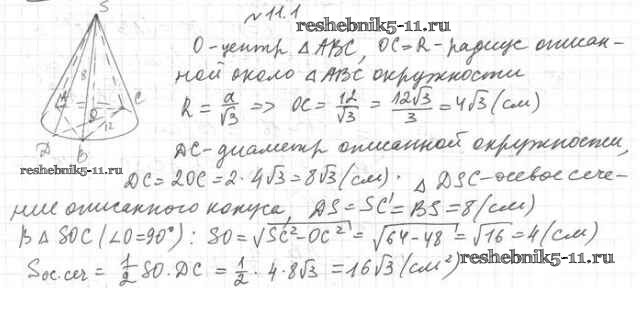 №11.1
reshebnik5-11.ru
S
8
A
C
O
12
D
B
O-центр △ABC, OC=R-радиус описан-
ной около △ABC окружности
R = a/√3 => OC = 12/√3 = 12√3/3 = 4√3 (см)
DC-диаметр описанной окружности,
reshebnik5-11.ru
DC = 2OC = 2·4√3 = 8√3 (см). △DSC-осевое сече-
ние описанного конуса, DS=SC=BS=8 (см)
В △SOC (∠O=90°): SO = √SC²-OC² = √64-48 = √16 = 4 (см)
Sос.сеч = 1/2 SO·DC = 1/2 · 4·8√3 = 16√3 (см²)
reshebnik5-11.ru